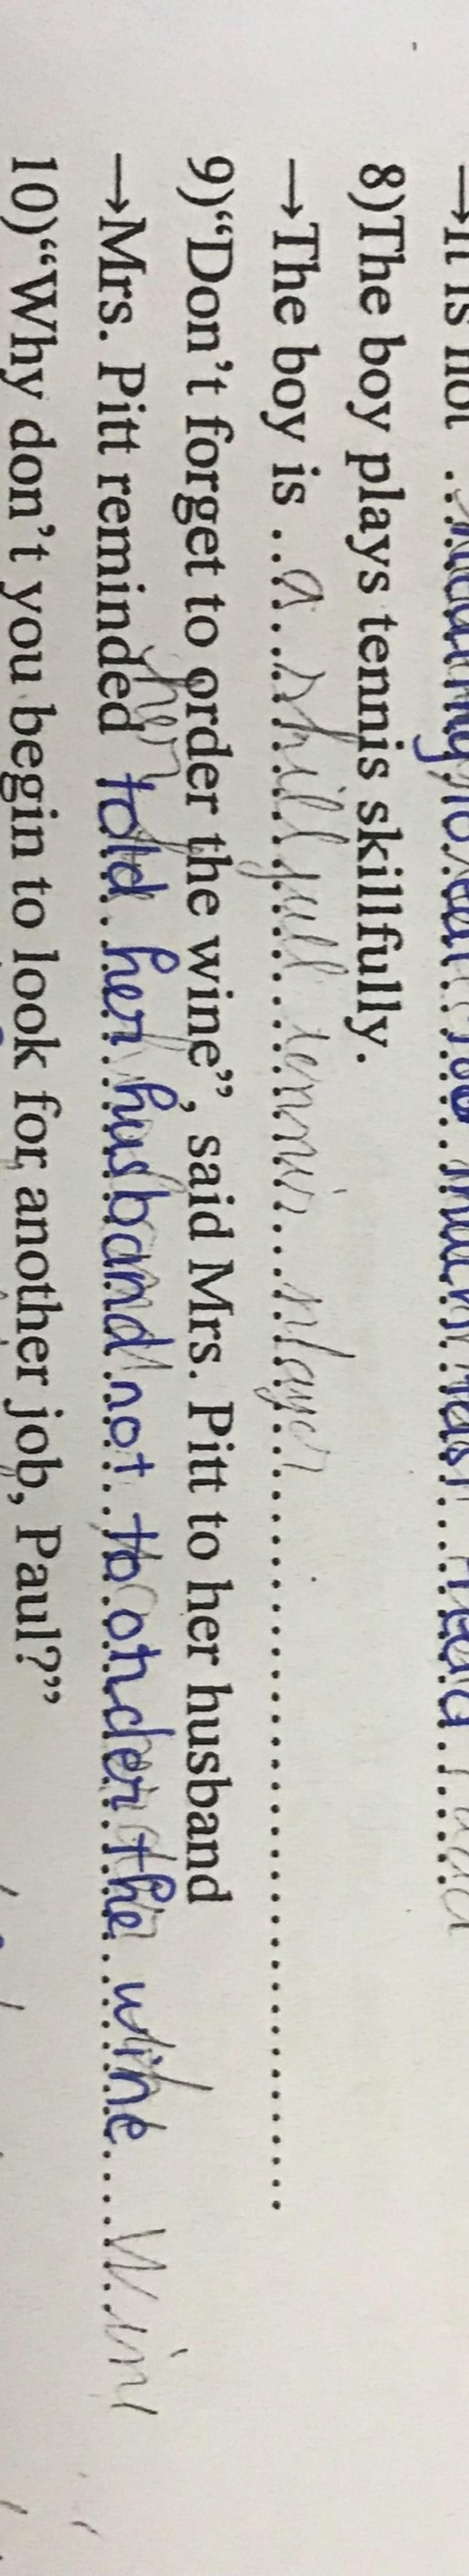 →It is not
8)The boy plays tennis skillfully.
→The boy is ..a..skillfull..tennis...player..............................
9)“Don’t forget to order the wine”, said Mrs. Pitt to her husband
→Mrs. Pitt reminded told her husband not to order the wine
10)“Why don’t you begin to look for another job, Paul?”